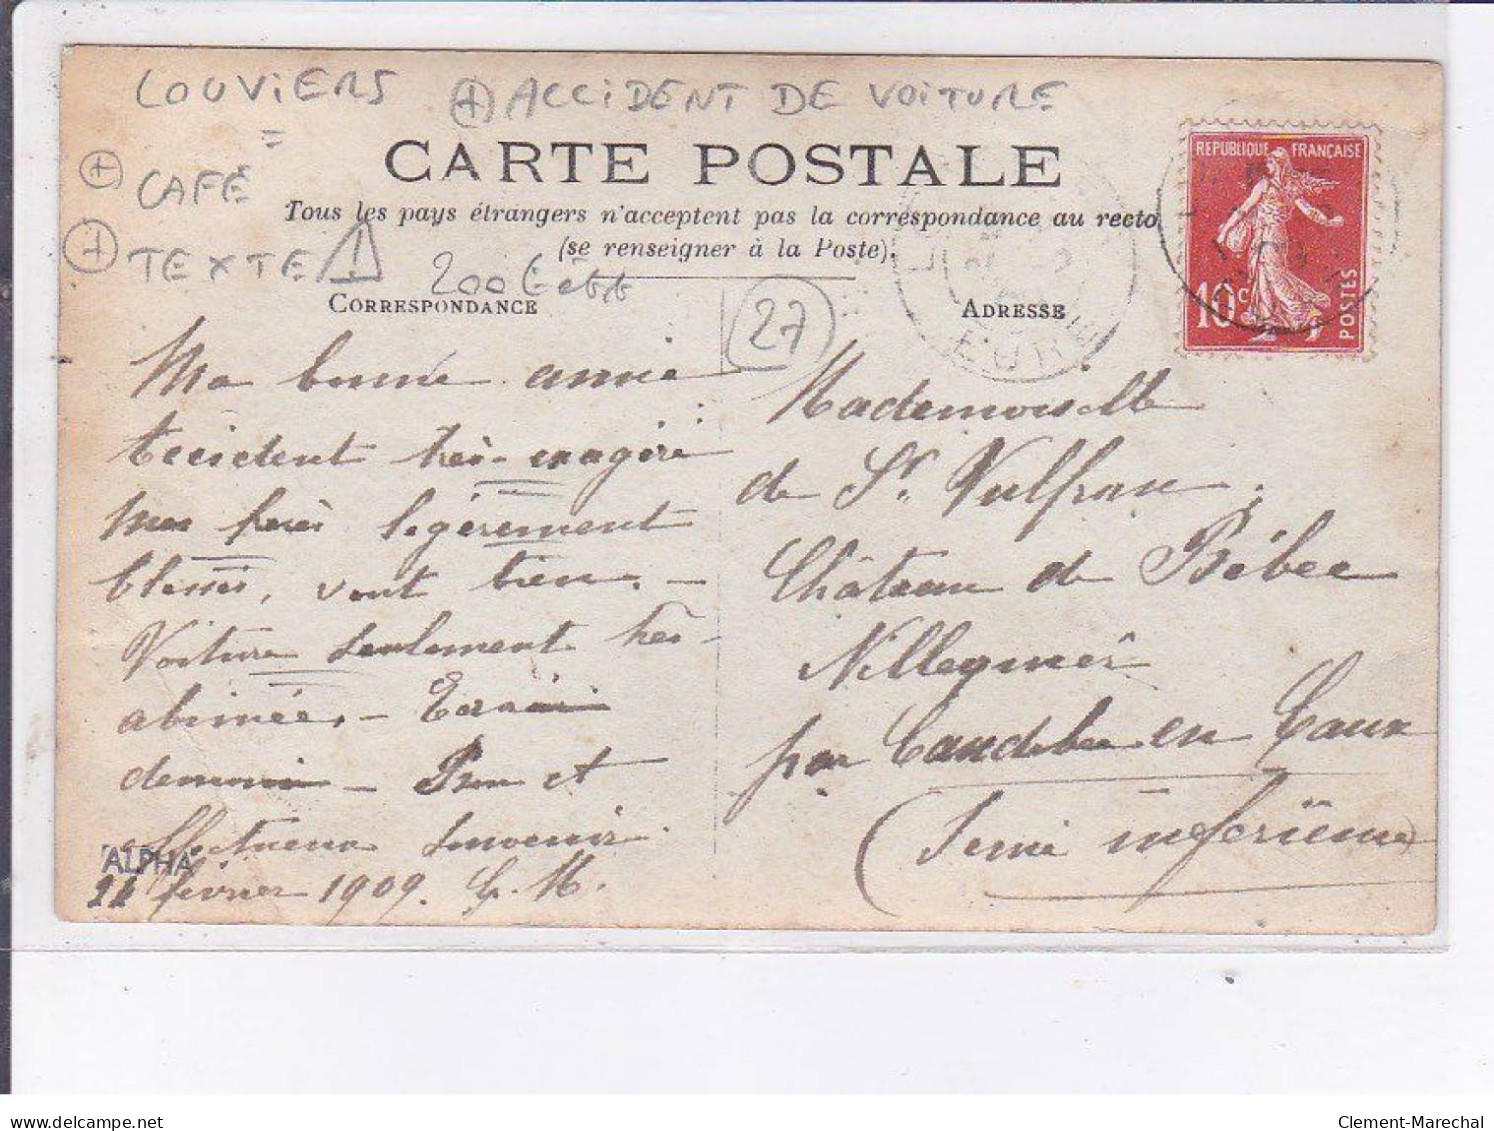 LOUVIERS
+ ACCIDENT DE VOITURE
CARTE POSTALE
+ CAFÉ
Tous les pays étrangers n'acceptent pas la correspondance au recto
(se renseigner à la Poste).
+ TEXTE !
200
CORRESPONDANCE
27
ADRESSE
REPUBLIQUE FRANÇAISE
10c
POSTES
EURE
Ma bonne amie
Accident très-exagéré
Mes frères légèrement
blessés, vont bien. —
Voiture seulement très-
abimée, —
demain — Bon et
affectueux souvenir.
ALPHA
21 février 1909. G. M.
Mademoiselle
de St. Vulfran.
Château de Bébec
Villequier
par Caudebec en Caux
(Seine inférieure)
delcampe.net
Clement-Marechal